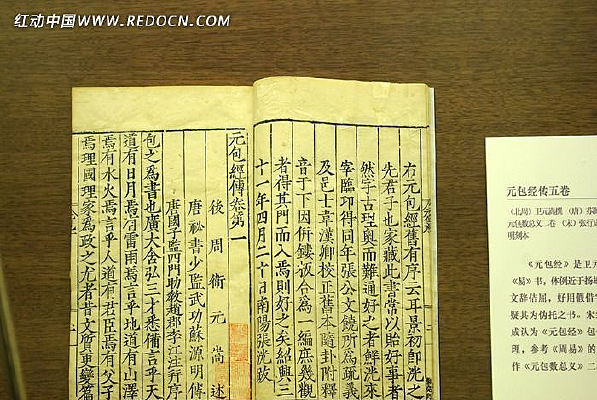 红动中国 WWW.REDOCN.COM
右元包經舊有序云耳景初卽洗之
先君子也家藏此書常以貽好事者
然字古理奥而難通好之者鮮洗來
宰臨卭得同年張公文饒所爲疏義
及邑士韋漢卿校正舊本隨卦附釋
音于下因併鏤板合爲一編庶幾觀
者得其門而入焉則好之矣紹興三
十一年四月二十日南陽張洗跋
元包經傳卷第一
後周衛元嵩述
唐祕書少監武功蘇源明傳
唐國子監四門助教趙郡李江注并序
包之爲書也廣大含弘三才悉備言乎天
道有日月焉有雷雨焉言乎地道有山澤
焉有水火焉言乎人道有君臣焉有父子
焉理國理家爲政之尤者昔文質更變篇
元包经传五卷
（北周）卫元嵩撰 （唐）苏
元包数总义二卷 （宋）张行
明刻本
《元包经》是卫元
《易》书，体例近于扬雄
文辞佶屈，好用僻借字
疑其为伪托之书。宋
成认为《元包经》包
理，参考《周易》的
作《元包数总义》二